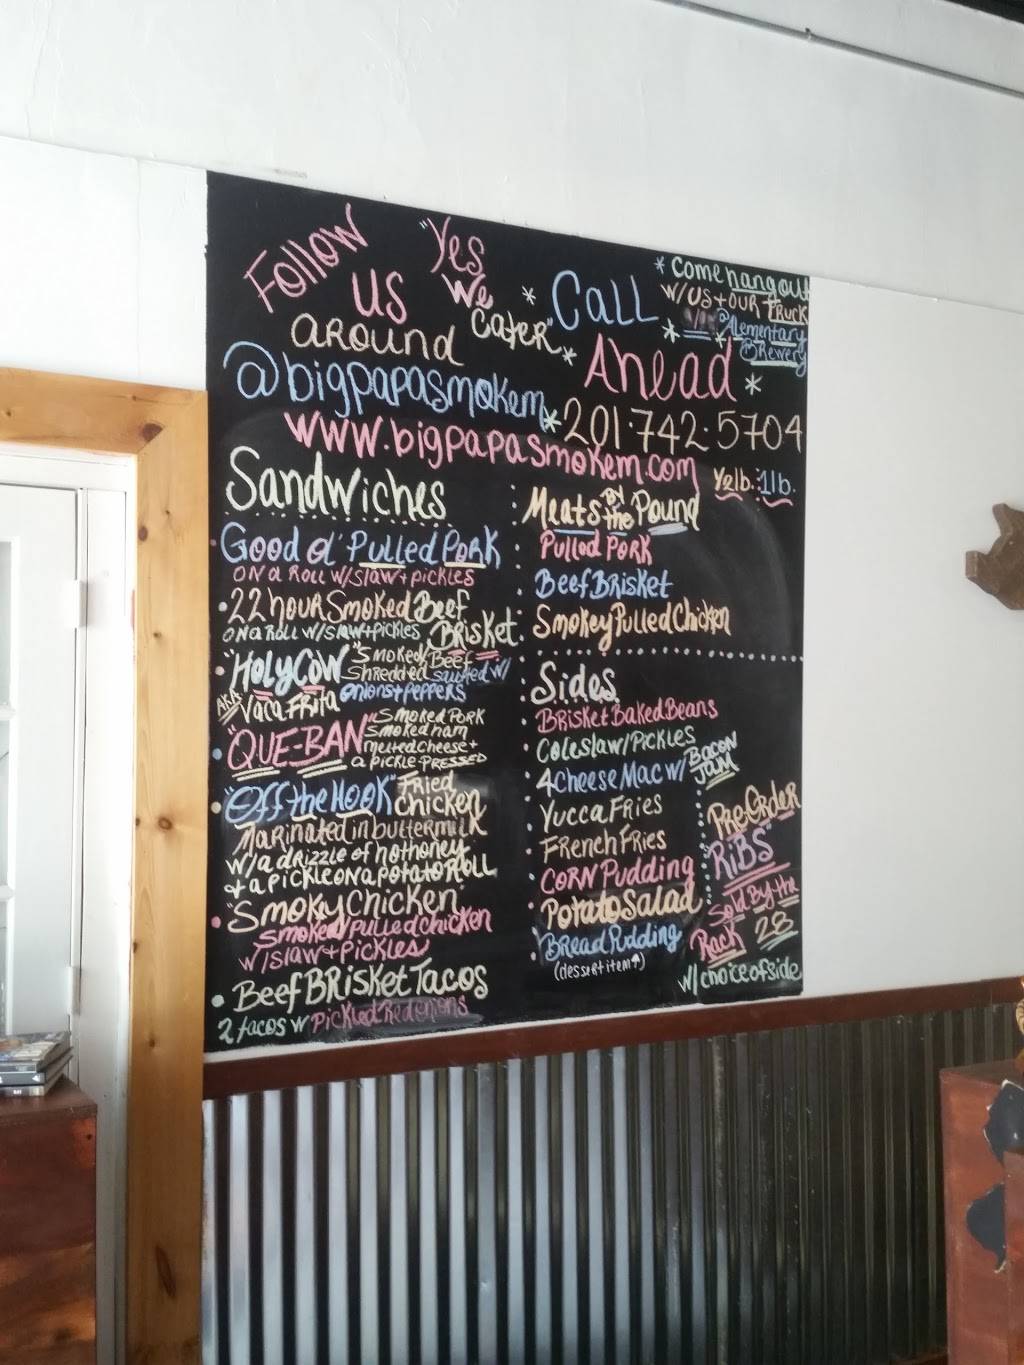 Follow
us
around
@bigpapasmokem
www.bigpapasmokem.com
"Yes
We
Cater"
* Call
* Ahead *
* 201.742.5704
* Come hang out
w/us + our truck
@Elementary
Brewery
Sandwiches
Good ol' Pulled Pork
on a roll w/slaw + pickles
22 hour Smoked Beef
Brisket
on a roll w/slaw + pickles
"Holy Cow" Smoked
Shredded Beef
sautéed w/
onions + peppers
AKA
Vaca Frita
"Que-Ban" Smoked Pork
smoked ham
melted cheese +
a pickle-pressed
"Off the Hook" Fried
chicken
Marinated in buttermilk
w/a drizzle of hothoney
+ a pickle on a potato roll
"Smokey Chicken
Smoked/pulled chicken
w/slaw + pickles
Beef Brisket Tacos
2 tacos w pickled red onions
Meats by
the Pound
½lb. : 1lb.
Pulled Pork
Beef Brisket
Smokey Pulled Chicken
Sides
Brisket Baked Beans
Coleslaw/Pickles
4 Cheese Mac w/ Bacon
Jam
Yucca Fries
French Fries
Corn Pudding
Potato Salad
Bread Pudding
(dessert item↑)
Pre-Order
"Ribs"
Sold By the
Rack 28
w/choice of side